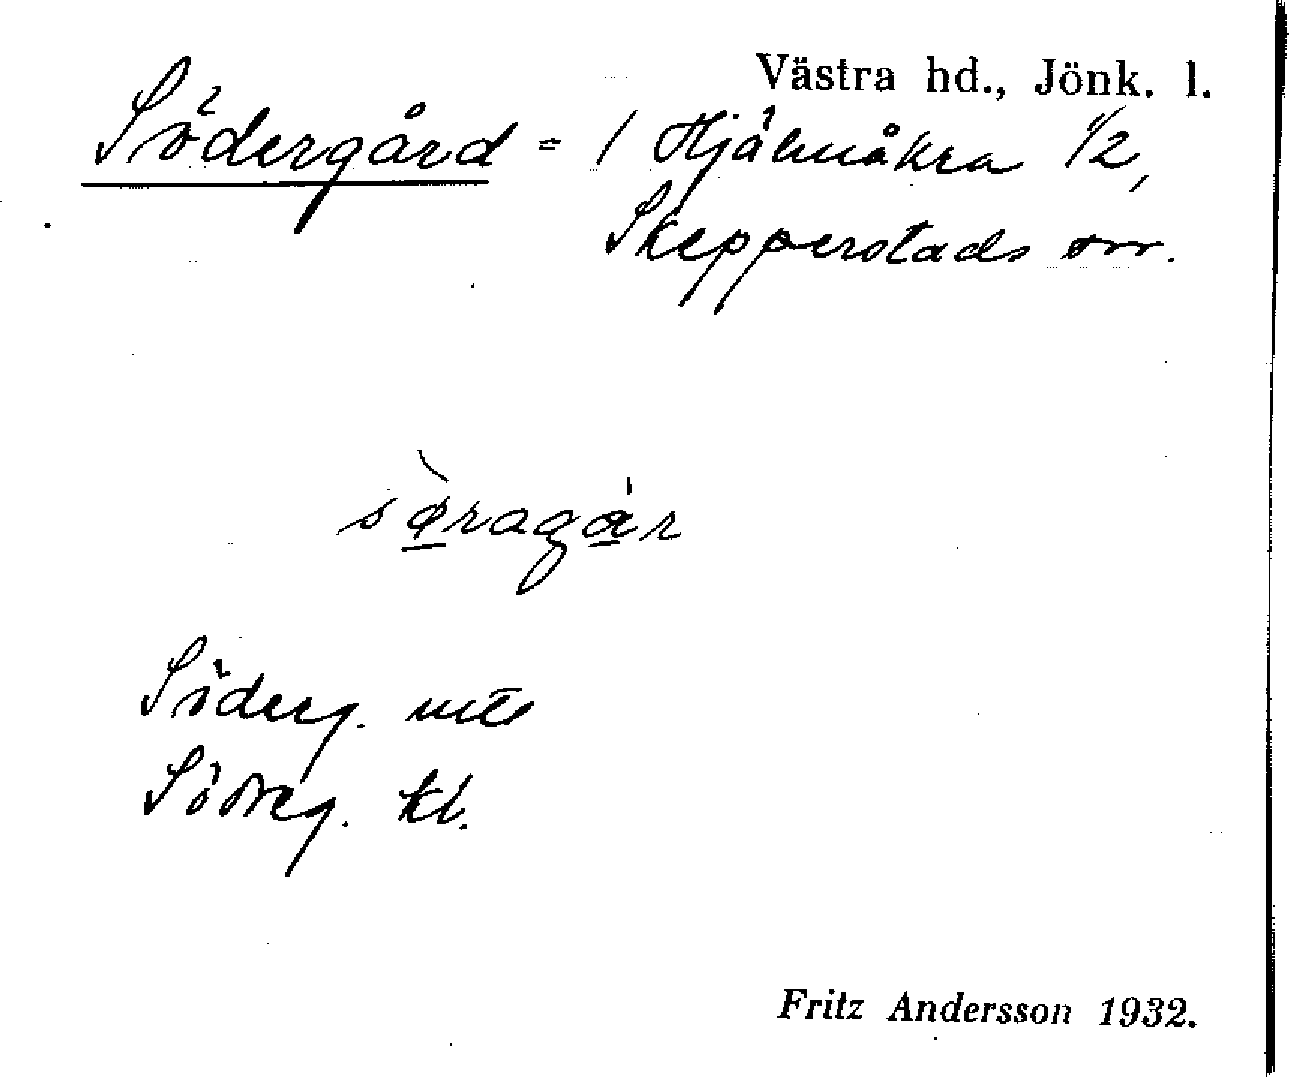 Västra hd., Jönk. l.
Södergård = / Hjälmåkra 1/2,
Skepperstads sn.
sø̱ragα̱r
Söderg.
Södreg. kl.
Fritz Andersson 1932.